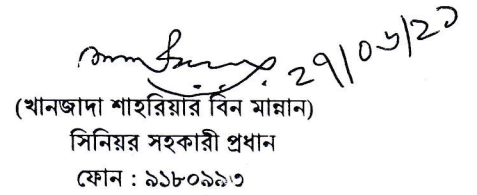 ২৭/০৬/২১
(খানজাদা শাহরিয়ার বিন মান্নান)
সিনিয়র সহকারী প্রধান
ফোন : ৯১৮০৯৯৩